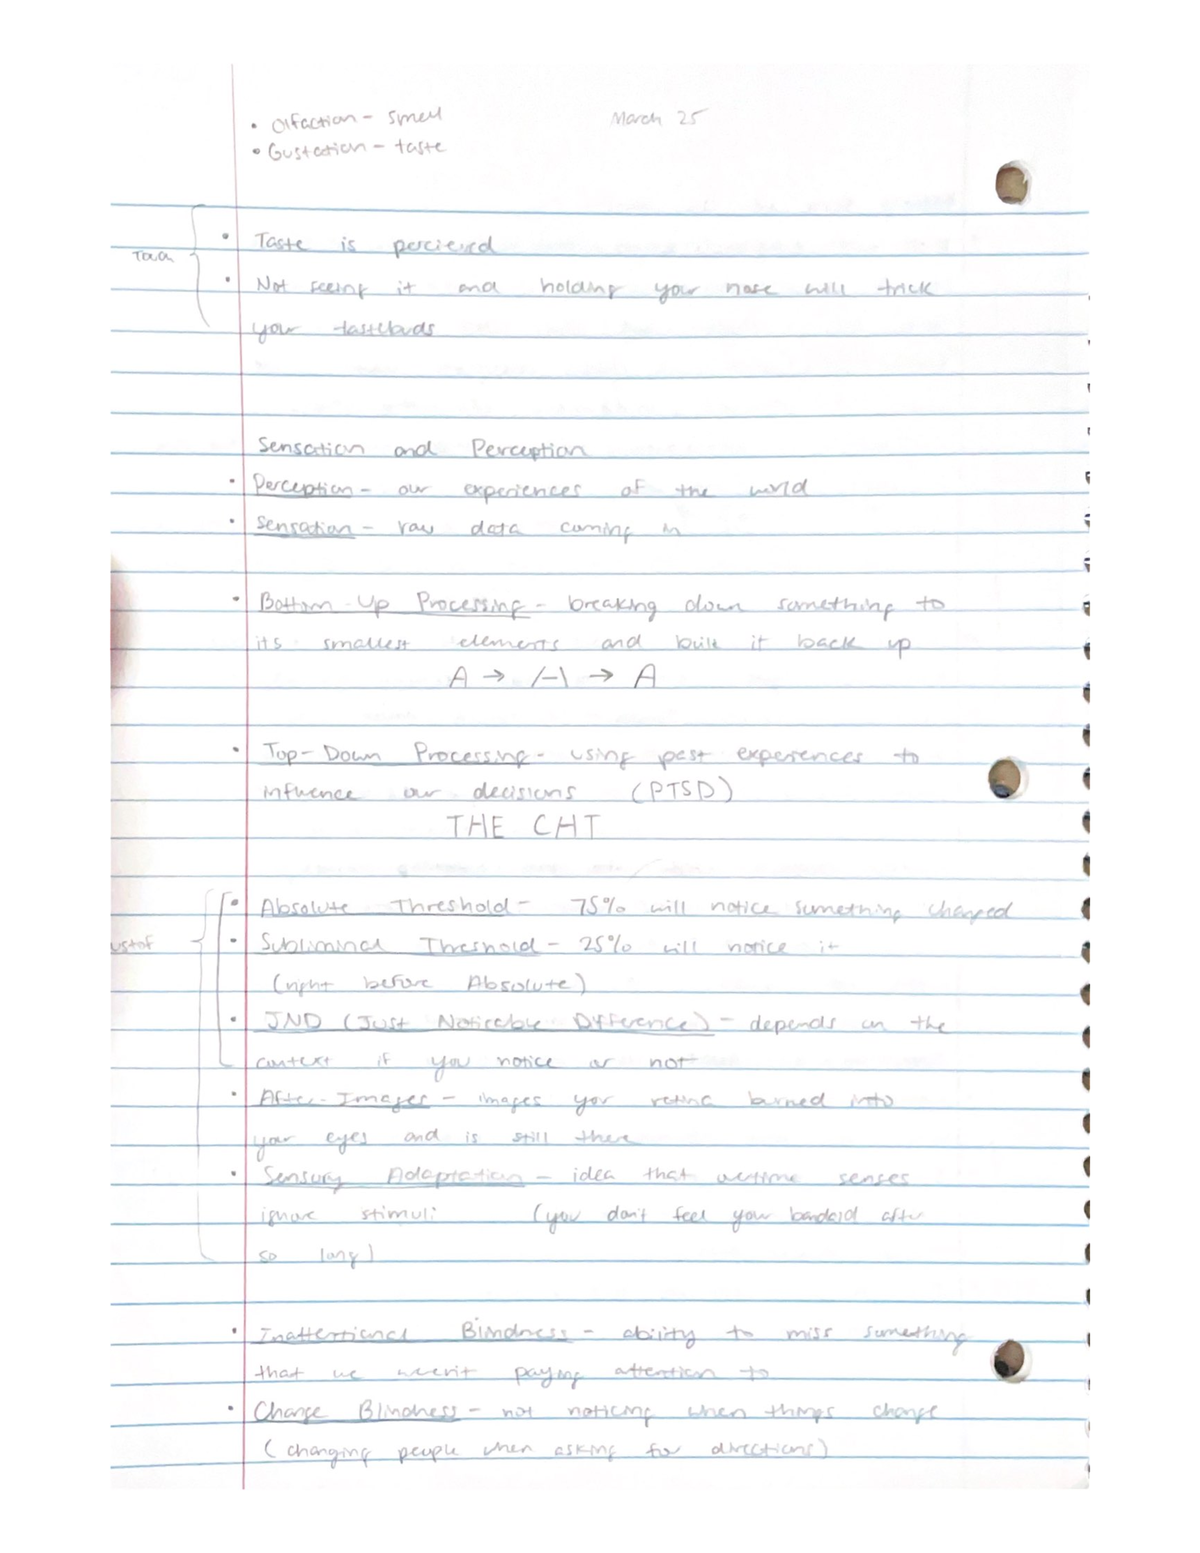 • Olfaction - smell March 25
• Gustation - taste
• Taste is percieved
• Not seeing it and holding your nose will trick
your tastebuds
Sensation and Perception
• Perception - our experiences of the world
• Sensation - raw data coming in
• Bottom-Up Processing - breaking down something to
its smallest elements and built it back up
A → /-\ → A
• Top-Down Processing - using past experiences to
influence our decisions (PTSD)
THE CHT
• Absolute Threshold - 75% will notice something changed
• Subliminal Threshold - 25% will notice it
(right before Absolute)
• JND (Just Noticeable Difference) - depends on the
context if you notice or not
• After-Images - images your retina burned into
your eyes and is still there
• Sensory Adaptation - idea that overtime senses
ignore stimuli (you don't feel your bandaid after
so long)
• Inattentional Blindness - ability to miss something
that we weren't paying attention to
• Change Blindness - not noticing when things change
(changing people when asking for directions)